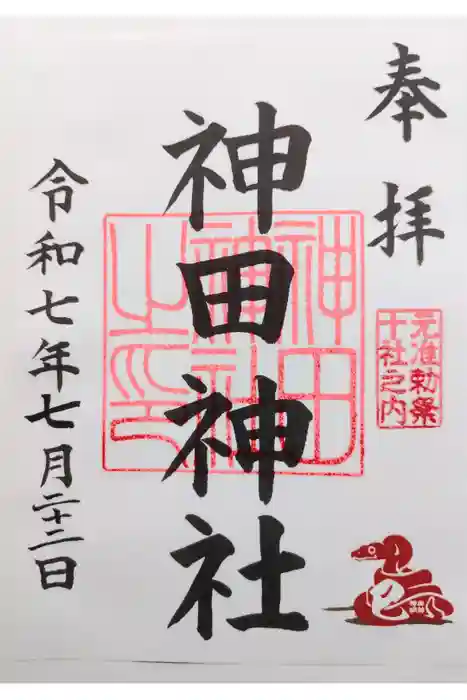 奉拝
元准勅祭
十社之内
神田神社
神田
神社
之印
令和七年七月二十二日
巳